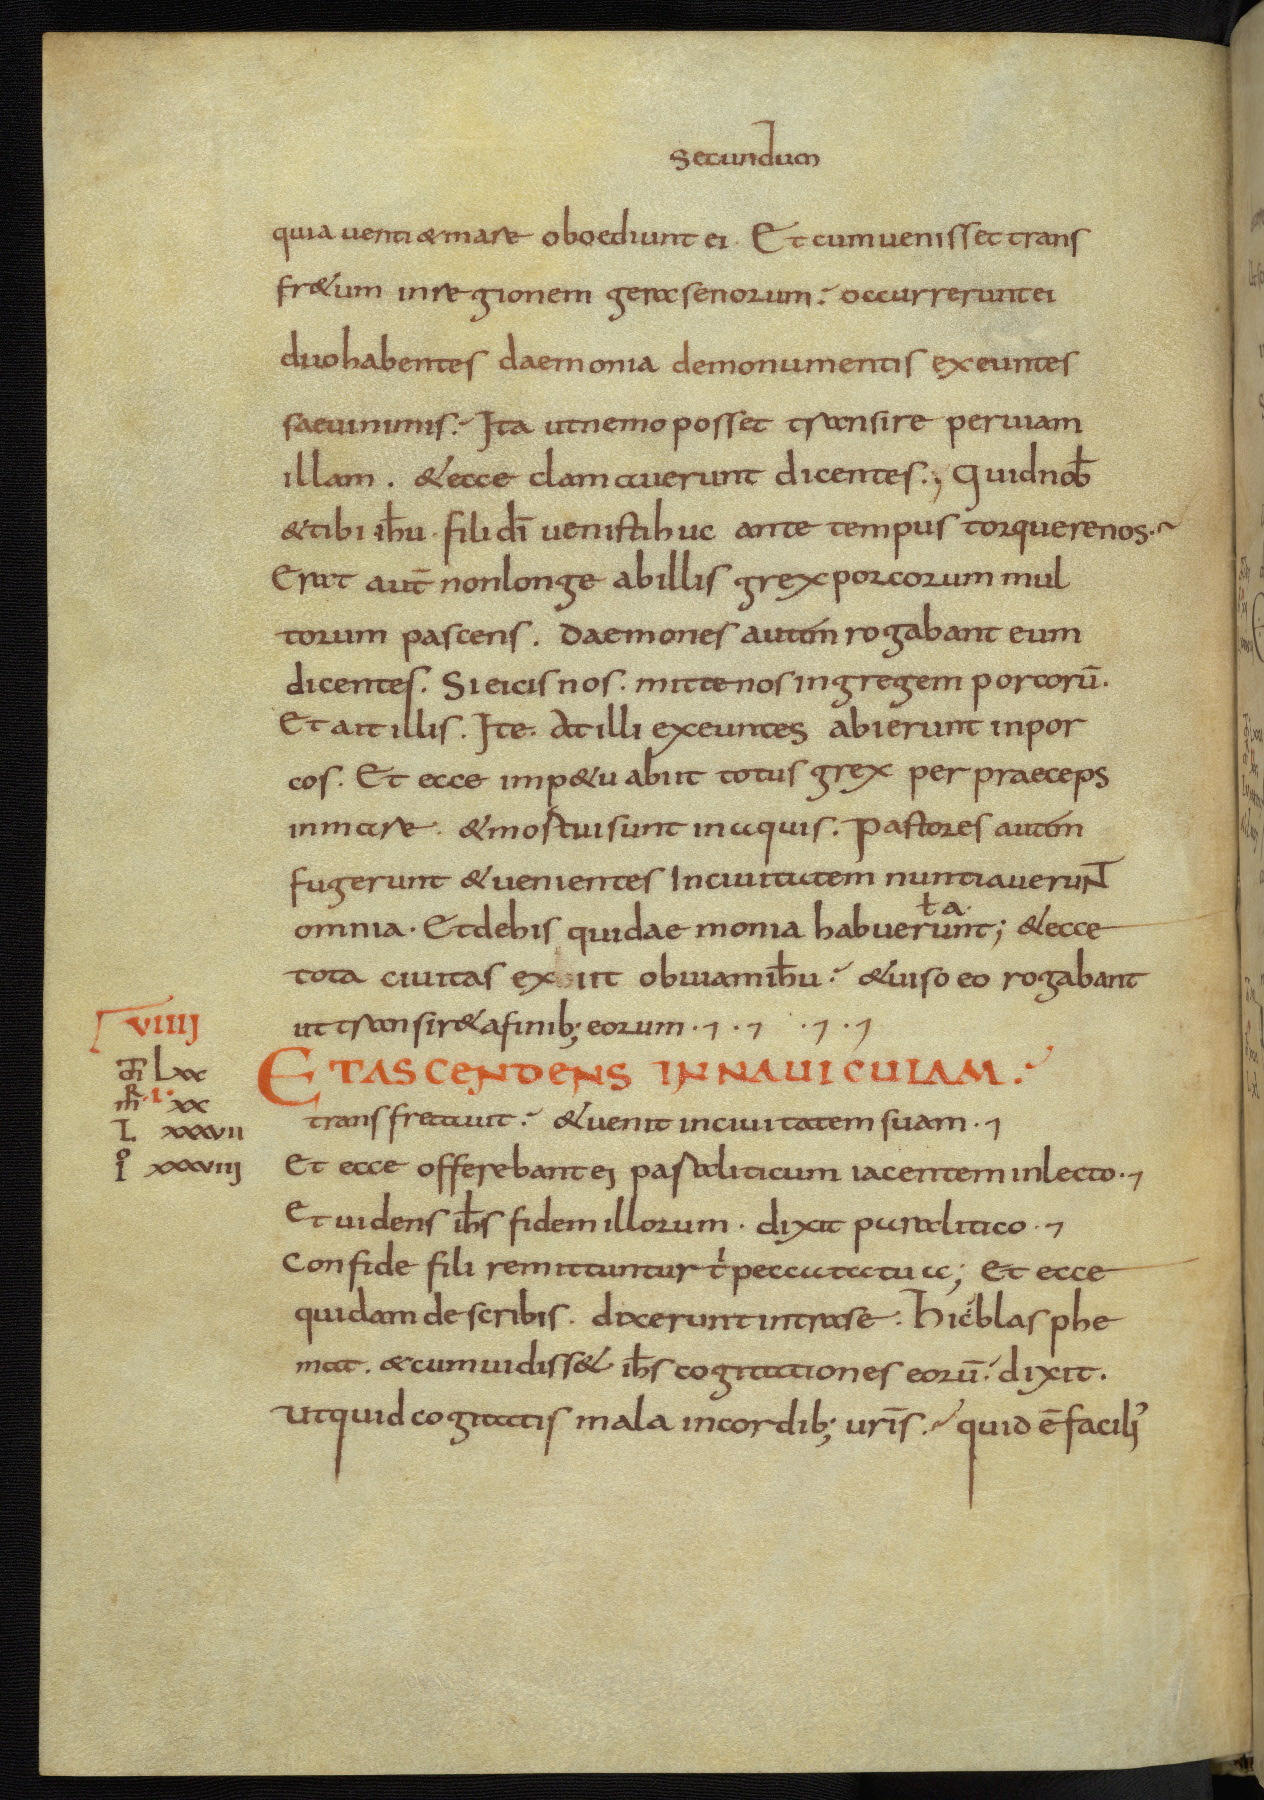 secundum
quia uenti & mare oboediunt ei. Et cum uenisset trans
fr&um in regionem gerasenorum. occurrerunt ei
duo habentes daemonia de monumentis exeuntes
saeui nimis. Ita ut nemo posset transire per uiam
illam. & ecce clamauerunt dicentes; Quid nob̄
& tibi ih̄u fili dī uenisti huc ante tempus torquere nos.
Erat aut̄ non longe ab illis grex porcorum mul
torum pascens. Daemones autem rogabant eum
dicentes. Si eicis nos. mitte nos in gregem porcorū.
Et ait illis. Ite. At illi exeuntes abierunt in por
cos. Et ecce imp&u abiit totus grex per praeceps
in mare. & mortui sunt in aquis. Pastores autem
fugerunt & uenientes In ciuitatem nuntiauerunt
ł a
omnia. Et de his qui daemonia habuerunt; & ecce
tota ciuitas exiit obuiam ih̄u. & uiso eo rogabant
ut transir& a finib; eorum.
VIIII
ET ASCENDENS IN NAUICULAM.
m̄ Lxx
mR .I. xx
L xxxvii
I xxxviii
transfretauit. & uenit in ciuitatem suam.
Et ecce offerebant ei paraliticum iacentem in lecto.
Et uidens ih̄s fidem illorum. dixit paralitico.
Confide fili remittuntur t peccata tua; Et ecce
quidam de scribis. dixerunt intra se. Hic blasphe
mat. & cum uidiss& ih̄s cogitationes eorū. dixit.
Ut quid cogitatis mala in cordib; urīs. quid ē facili'